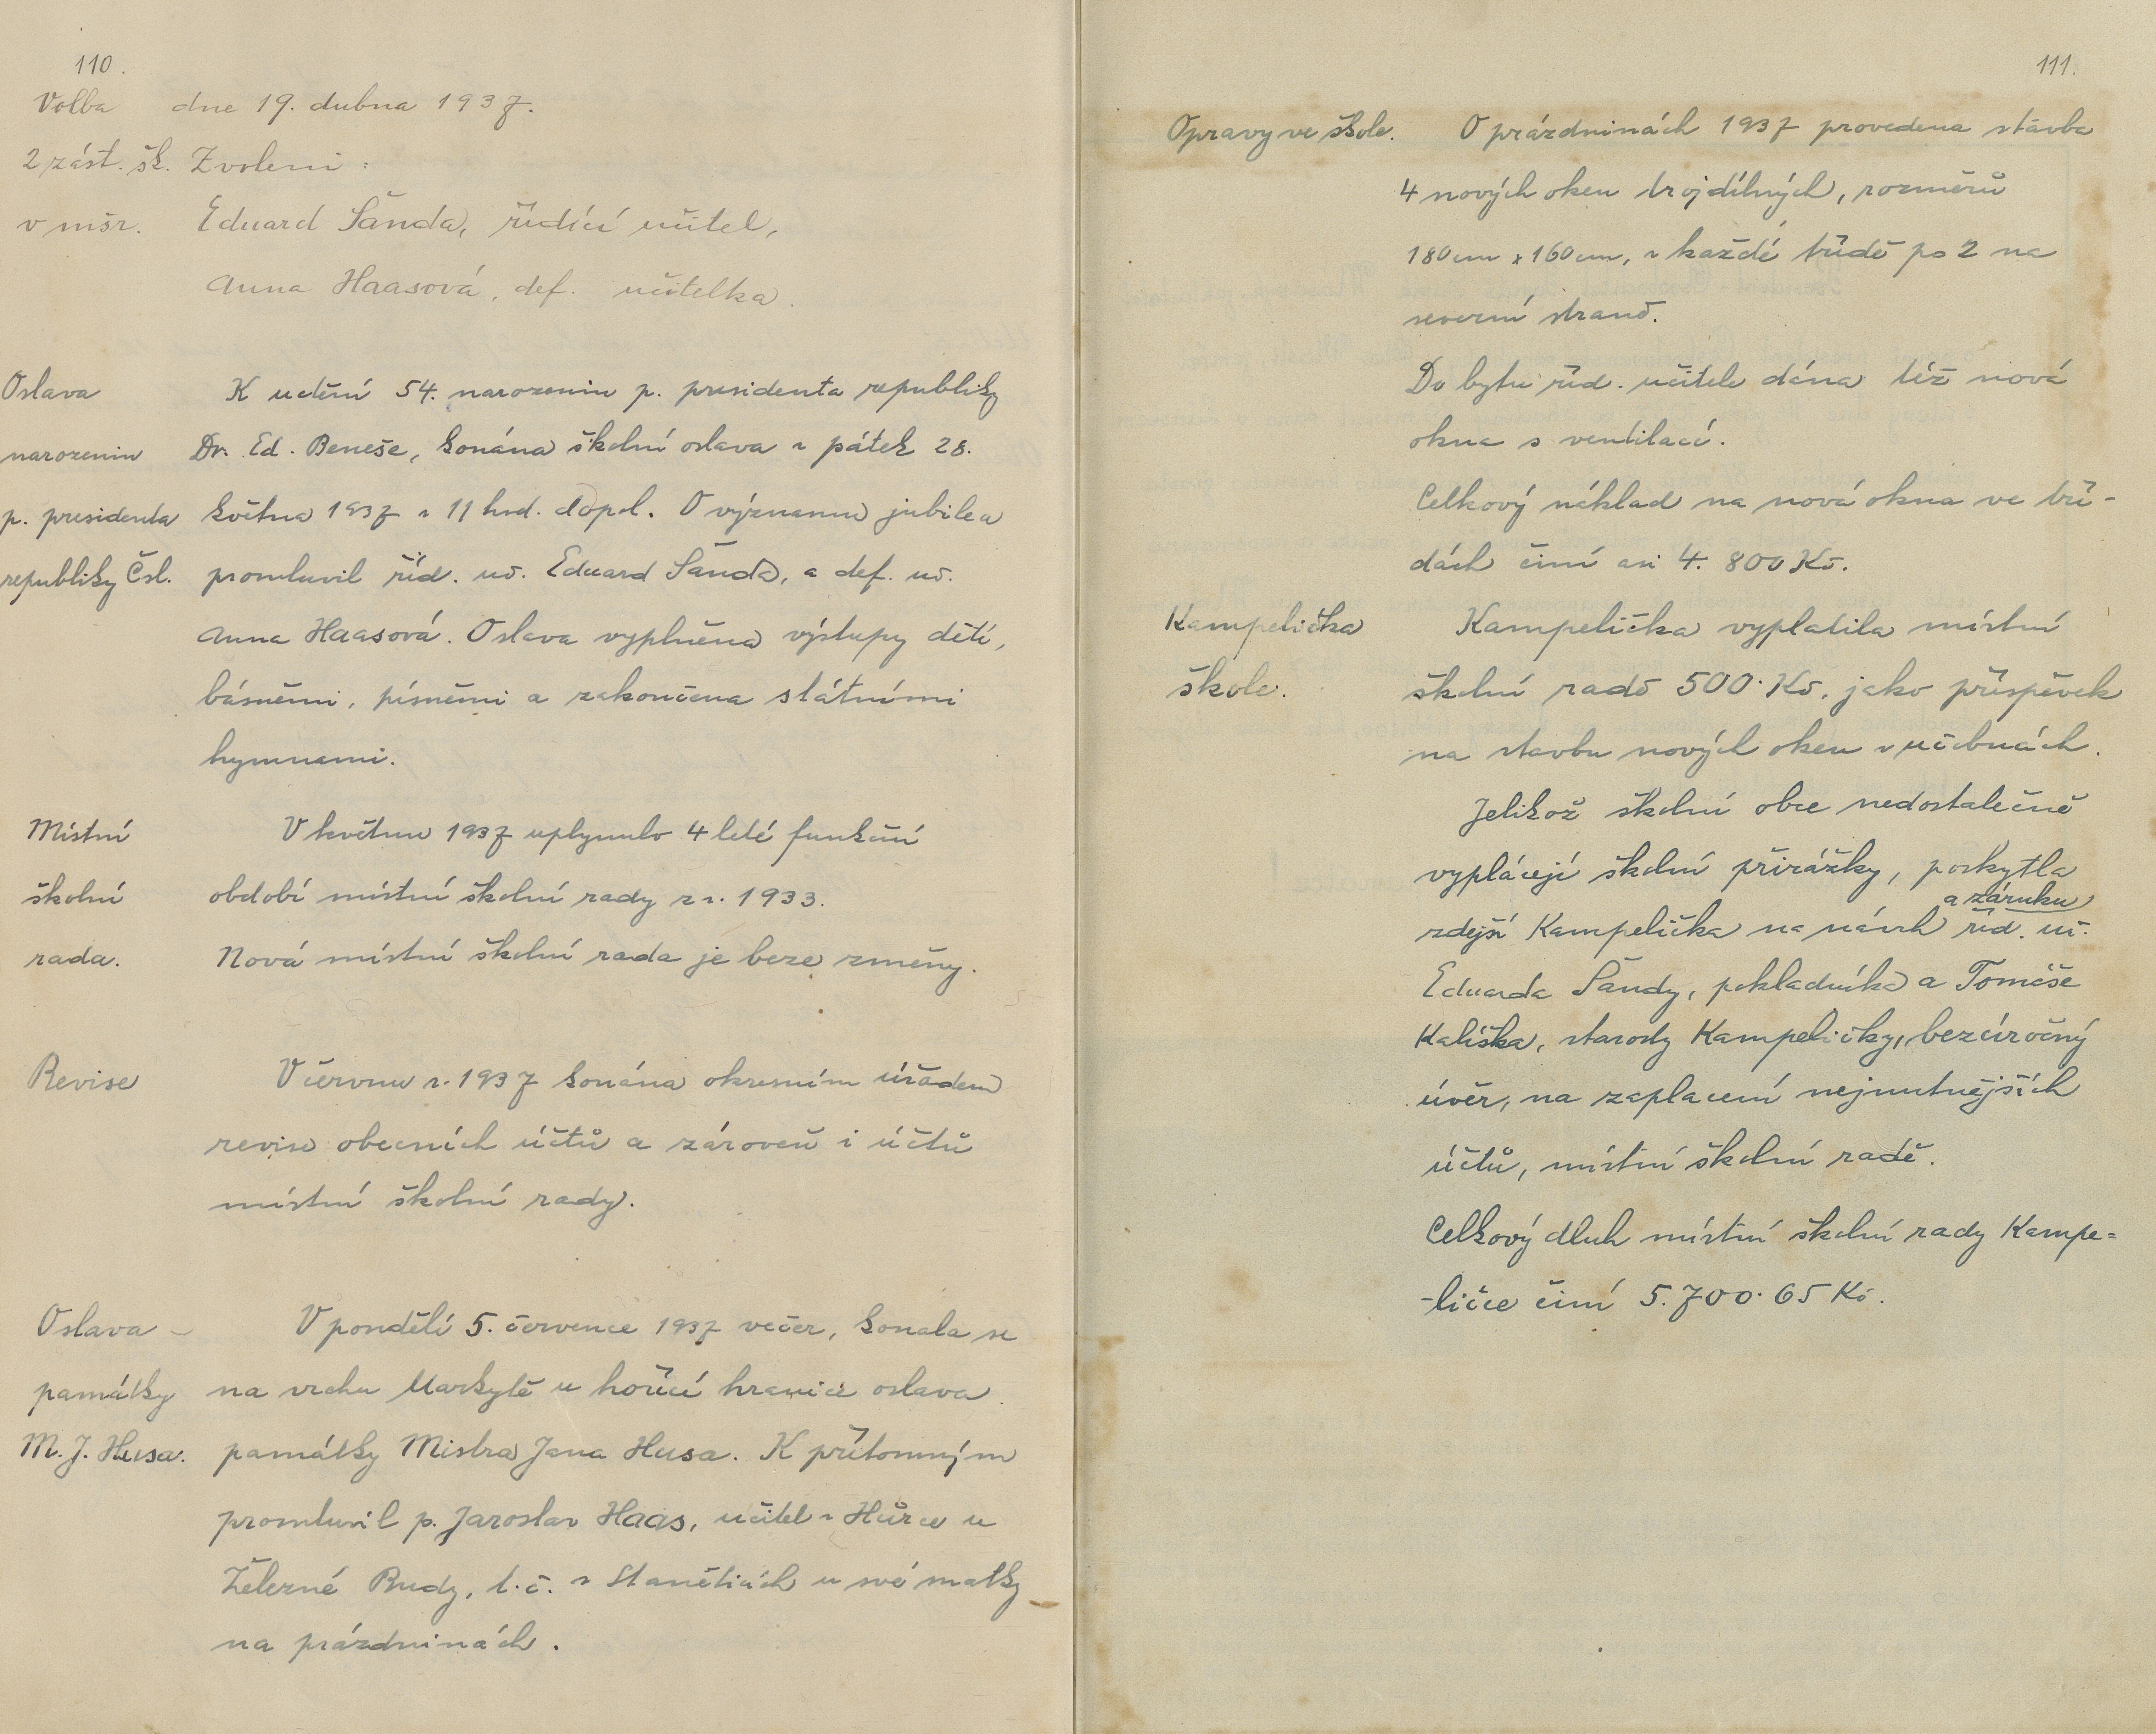 110.
Volba dne 19. dubna 1937.
2 zást. šk. Zvoleni:
v mšr. Eduard Šanda, řídící učitel,
Anna Haasová, def. učitelka.
Oslava K uctění 54. narozenin p. presidenta republiky
narozenin Dr. Ed. Beneše, konána školní oslava v pátek 28.
p. presidenta května 1937 v 11 hod. dopol. O významu jubilea
republiky Čsl. promluvil říd. uč. Eduard Šanda, a def. uč.
Anna Haasová. Oslava vyplněna výstupy dětí,
básněmi, písněmi a zakončena státními
hymnami.
Místní V květnu 1937 uplynulo 4 leté funkční
školní období místní školní rady z r. 1933.
rada. Nová místní školní rada je beze změny.
Revise V červnu r. 1937 konána okresním úřadem
revise obecních účtů a zároveň i účtů
místní školní rady.
Oslava V pondělí 5. července 1937 večer, konala se
památky na vrchu Markytě u hořící hranice oslava
M. J. Husa. památky Mistra Jana Husa. K přítomným
promluvil p. Jaroslav Haas, učitel v Hůrce u
Železné Rudy, t. č. v Staněticích u své matky
na prázdninách.
111.
Opravy ve škole. O prázdninách 1937 provedena stavba
4 nových oken trojdílných, rozměrů
180 cm x 160 cm, v každé třídě po 2 na
severní straně.
Do bytu říd. učitele dána též nová
okna s ventilací.
Celkový náklad na nová okna ve tří-
dách činí asi 4.800 Kč.
Kampelička Kampelička vyplatila místní
škole. školní radě 500· Kč. jako příspěvek
na stavbu nových oken v učebnách.
Jelikož školní obce nedostatečně
vyplácejí školní přirážky, poskytla
a záruku
zdejší Kampelička na návrh říd. uč.
Eduarda Šandy, pokladníka a Tomáše
Kalíška, starosty Kampeličky, bezúročný
úvěr, na zaplacení nejnutnějších
účtů, místní školní radě.
Celkový dluh místní školní rady Kampe=
-ličce činí 5.700·65 Kč.